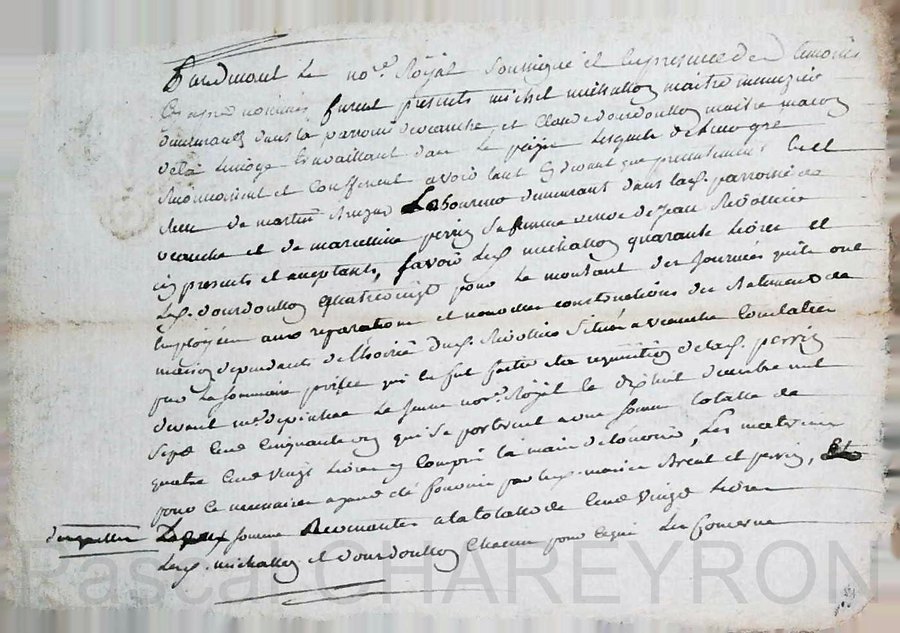 Pardevant Le no.re Royal Soussigné et En presence des temoins
En apres nommés furent presents michel michallon maitre menuzier
demeurant dans la parroisse de veauche et Claude dourdoullon maitre macon
de la Limoge travaillant dans Le païs Lesquels de Leur gre
Reconnoissent et Confessent avoir tant Cy devant que presentement
de martin Laboureur demeurant dans lad. parroisse de
veauche et de marcelline perrin Sa femme veuve de Jean Revollier
icy presents et acceptants, Savoir Led. michallon quarante Livres et
Led. dourdoullon quatrevingt pour Le montant des Journées quils ont
Employées aux reparations et nouvelles constructions des Batiments de
maison dependants de l'hoirie dud. Revollier Situés a veauche
par La Sommaire prisee qui En fut faitte a la requisition de lad. perrin
devant m.e Le Jeune no.re Royal le dixhuit decembre mil
Sept Cent Cinquante qui Se porterent a une Somme totalle de
quatre Cent Vingt Livres y Compris la main de l'oeuvre, Les materiaux
pour ce necessaires ayant été fournis par lesd. mariés et perrin,
desquelles Somme Revenantes a la totalle de Cent Vingt Livres
Lesd. michallon et dourdoullon Chacun pour Ce qui Les Concerne
Pascal CHAREYRON